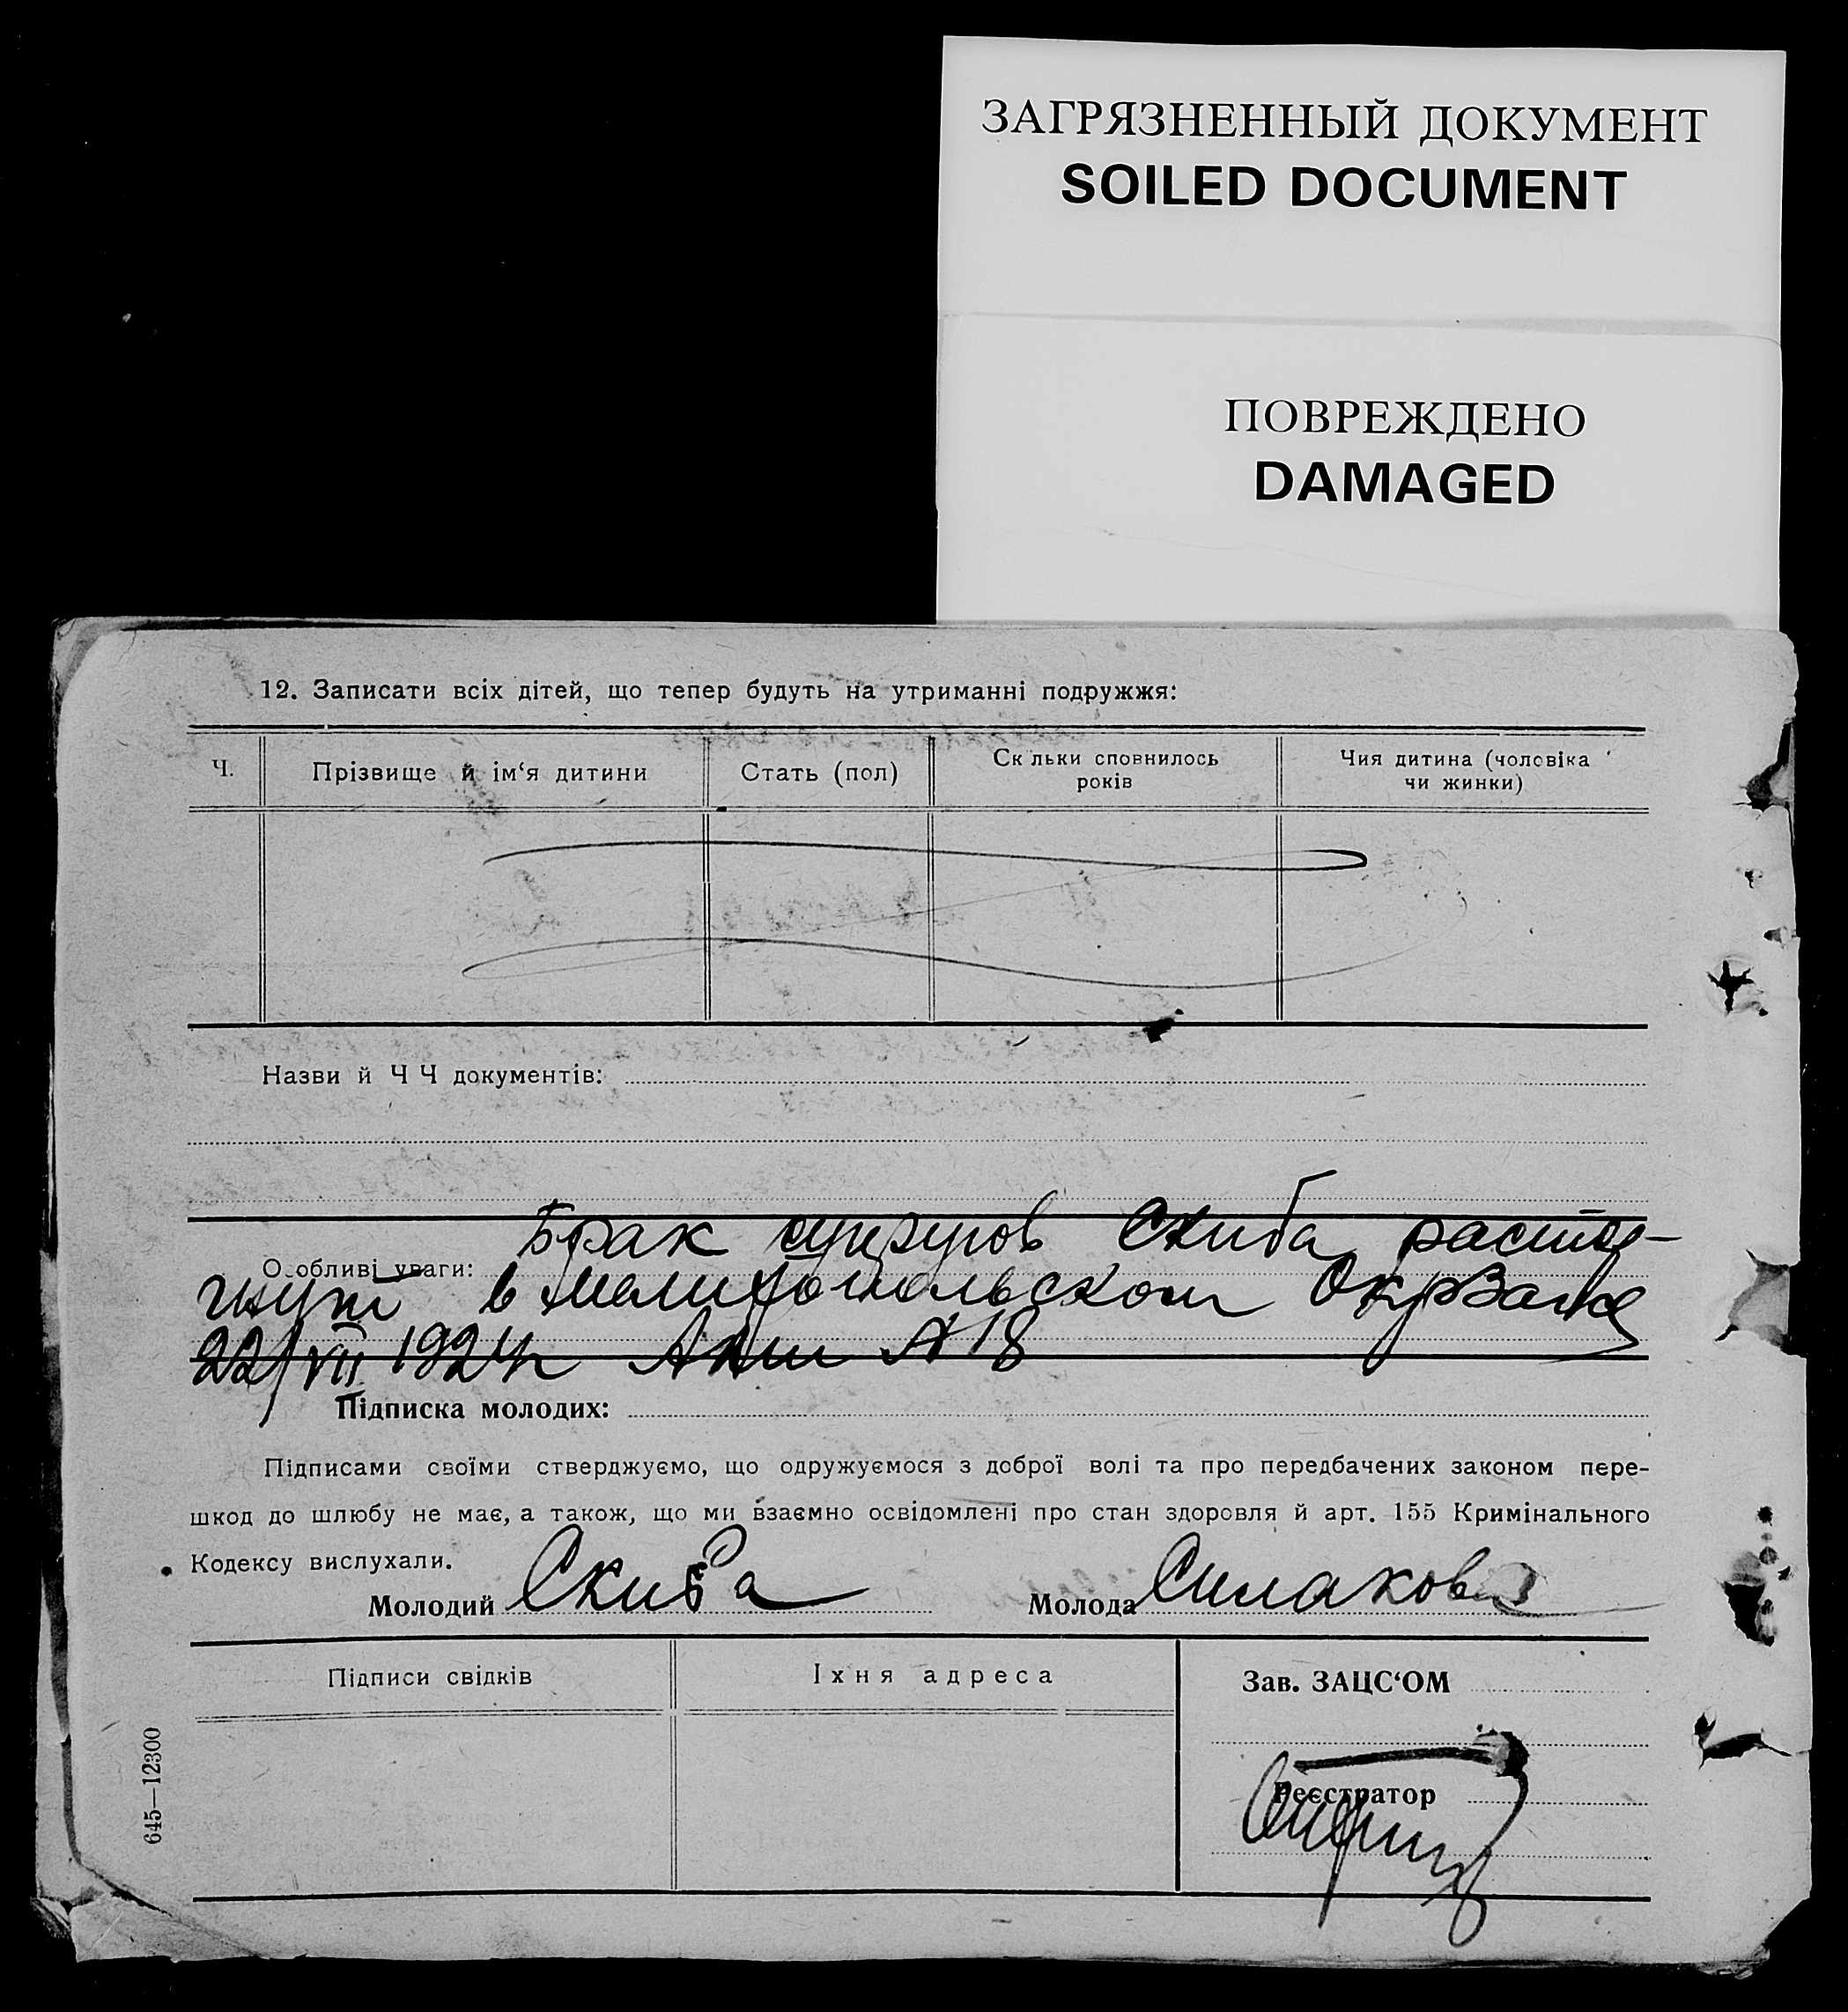 ЗАГРЯЗНЕННЫЙ ДОКУМЕНТ
SOILED DOCUMENT
ПОВРЕЖДЕНО
DAMAGED
12. Записати всіх дітей, що тепер будуть на утриманні подружжя:
Ч.
Прізвище й ім‘я дитини
Стать (пол)
Ск льки сповнилось
років
Чия дитина (чоловіка
чи жинки)
Назви й Ч Ч документів:
Брак супругов Скиба расто-
Особливі уваги:
гнут в Мелитопольском ОкрЗагсе
22/VII 1924 г Акт № 18
Підписка молодих:
Підписами своїми стверджуємо, що одружуємося з доброї волі та про передбачених законом пере-
шкод до шлюбу не має, а також, що ми взаємно освідомлені про стан здоровля й арт. 155 Кримінального
Кодексу вислухали.
Молодий Скиба
Молода Силакова
Підписи свідків
Їхня адреса
Зав. ЗАЦС‘ОМ
Реєстратор
645—12300